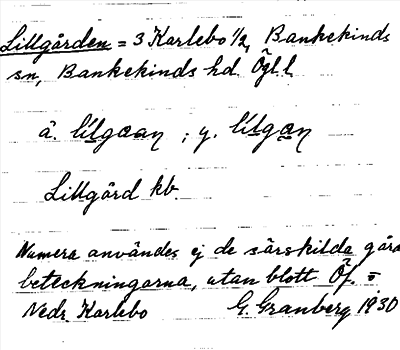 Lillgården = 3 Karlebo 1/2, Bankekinds
sn, Bankekinds hd. Ögl. l.
ä. lílgaan ; y. lílgan
Lillgård kb.
Numera användes ej de särskilda gårds
beteckningarna, utan blott Öf. =
Nedr Karlebo G. Granberg 1930